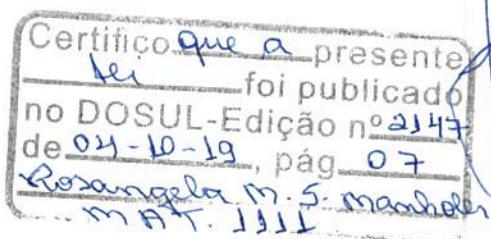 Certifico que a presente
Lei foi publicado
no DOSUL-Edição nº 2147
de 04-10-19, pág 07
Rosangela M. S.
MAT. 1111